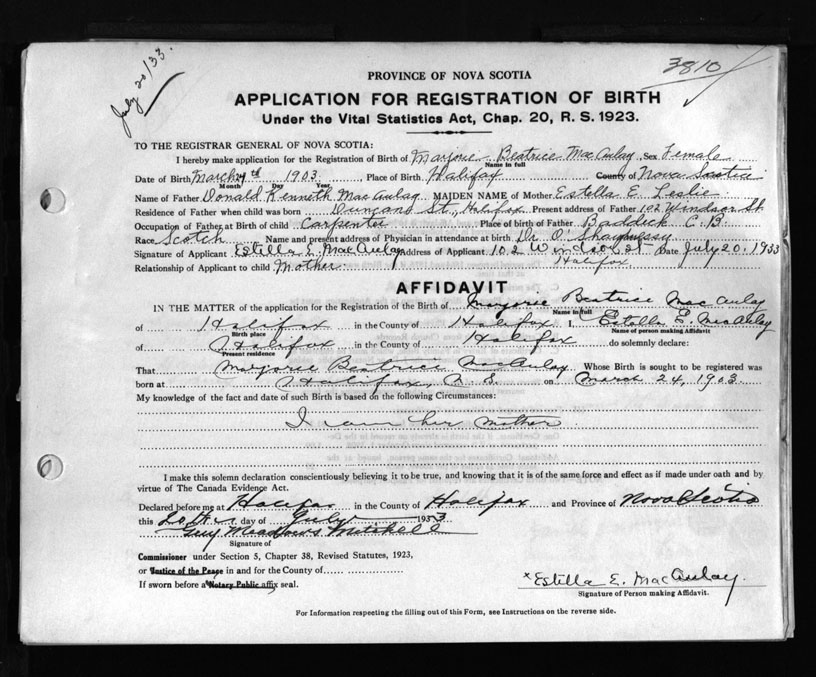 July 20/33.
3810
PROVINCE OF NOVA SCOTIA
APPLICATION FOR REGISTRATION OF BIRTH
Under the Vital Statistics Act, Chap. 20, R. S. 1923.
TO THE REGISTRAR GENERAL OF NOVA SCOTIA:
I hereby make application for the Registration of Birth of Marjorie Beatrice MacAulay Sex Female
Name in full
Date of Birth March 24th 1903 Place of Birth Halifax County of Nova Scotia
Month Day Year
Name of Father Donald Kenneth MacAulay MAIDEN NAME of Mother Estella E. Leslie
Residence of Father when child was born Duncans St., Halifax Present address of Father 102 Windsor St
Occupation of Father at Birth of child Carpenter Place of birth of Father Baddick C.B.
Race Scotch Name and present address of Physician in attendance at birth Dr. O'
Signature of Applicant Estella E. MacAulay Address of Applicant 102 Windsor St Date July 20. 1933
Relationship of Applicant to child Mother. Halifax
AFFIDAVIT
IN THE MATTER of the application for the Registration of the Birth of Marjorie Beatrice MacAulay
Name in full
of Halifax in the County of Halifax I, Estella E. MacAulay
Birth place Name of person making Affidavit
of Halifax in the County of Halifax do solemnly declare:
Present residence
That Marjorie Beatrice MacAulay Whose Birth is sought to be registered was
born at Halifax, N. S. on March 24, 1903.
My knowledge of the fact and date of such Birth is based on the following Circumstances:
I am her mother
I make this solemn declaration conscientiously believing it to be true, and knowing that it is of the same force and effect as if made under oath and by
virtue of The Canada Evidence Act.
Declared before me at Halifax in the County of Halifax and Province of Nova Scotia
this 20th day of July 1933
Guy Meadows Mitchell
Signature of
Commissioner under Section 5, Chapter 38, Revised Statutes, 1923,
or Justice of the Peace in and for the County of
If sworn before a Notary Public affix seal.
× Estella E. MacAulay.
Signature of Person making Affidavit.
For Information respecting the filling out of this Form, see Instructions on the reverse side.